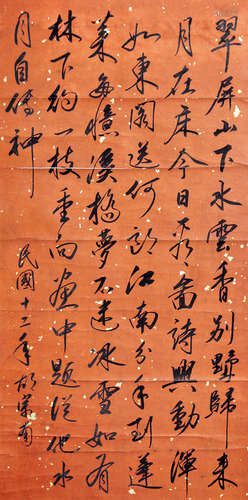 翠屏山下水雲香別墅歸来
月在床今日看畫詩興動渾
如東閣送何郎江南分手到蓬
萊每憶溪橋夢不迷冰雪如有
林下約一枝重向畫中題從他水
月自傳神
民國十二年胡